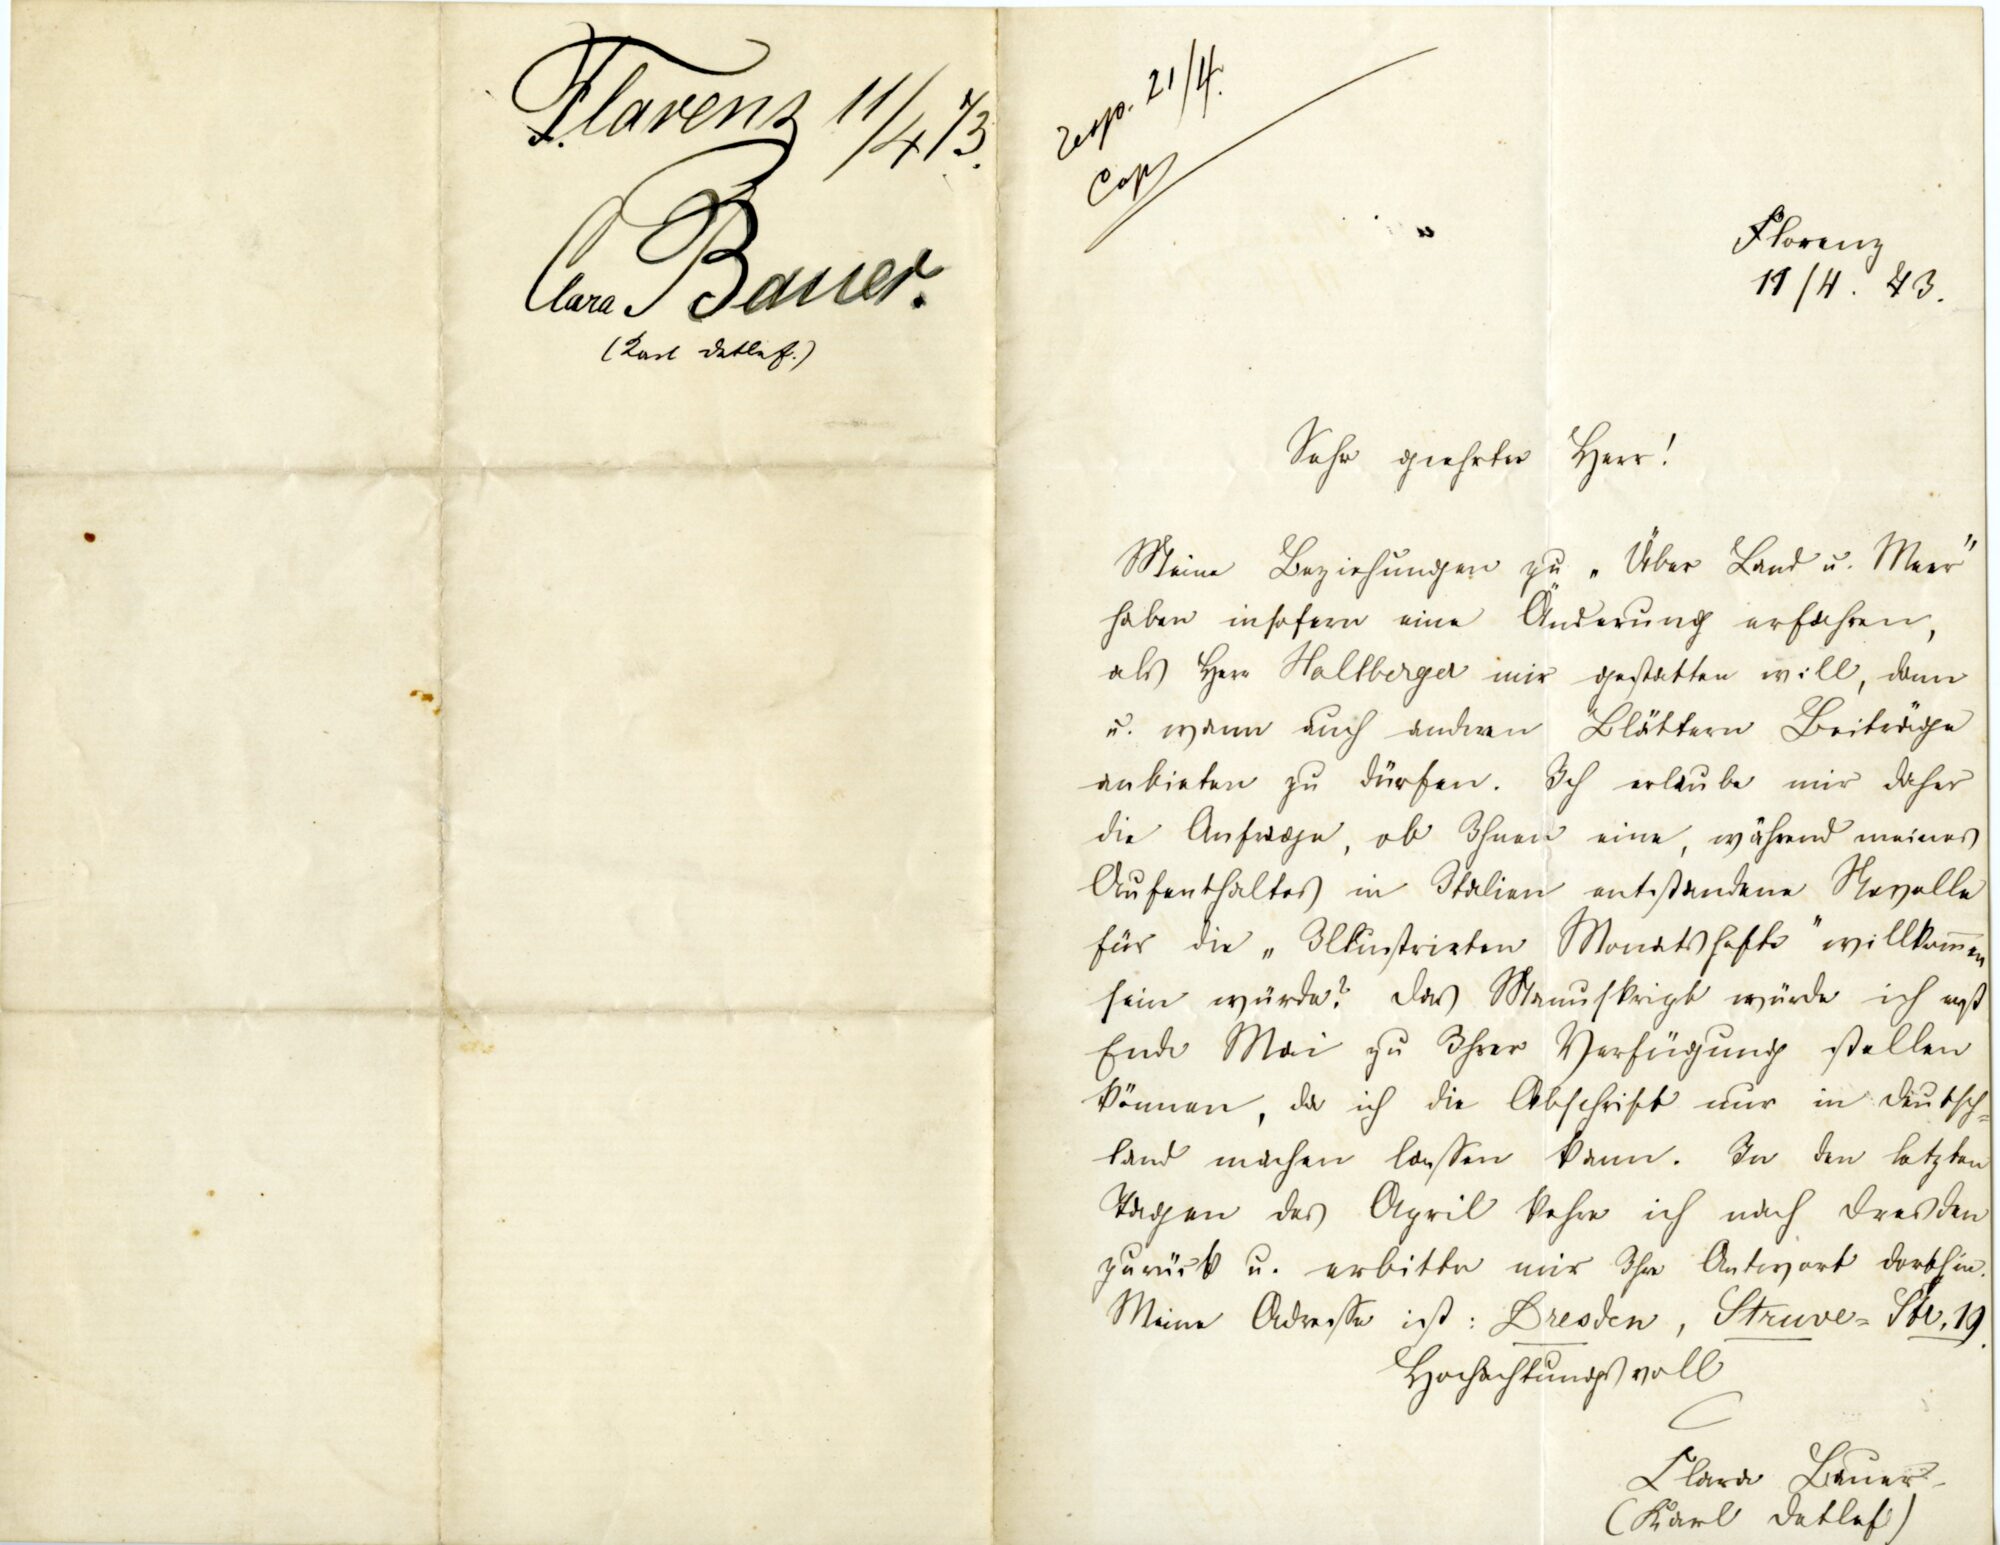 Florenz 11/4 73.
Clara Bauer.
(Karl Detlef.)
resp. 21/4.
Cop
Florenz
11/4. 73.
Sehr geehrter Herr!
Meine Beziehungen zu „Über Land u. Meer"
haben insofern eine Änderung erfahren,
als Herr Hallberger mir gestatten will, dann
u. wann auch anderen Blättern Beiträge
anbieten zu dürfen. Ich erlaube mir daher
die Anfrage, ob Ihnen eine, während meines
Aufenthaltes in Italien entstandene Novelle
für die „Illustrirten Monatshefte" willkom̅en
sein würde? Das Manuskript würde ich erst
Ende Mai zu Ihrer Verfügung stellen
können, da ich die Abschrift nur in Deutsch=
land machen lassen kann. In den letzten
Tagen des April kehre ich nach Dresden
zurück u. erbitte mir Ihre Antwort dorthin.
Meine Adresse ist: Dresden, Struve=Str. 19.
Hochachtungsvoll
Clara Bauer.
(Karl Detlef)